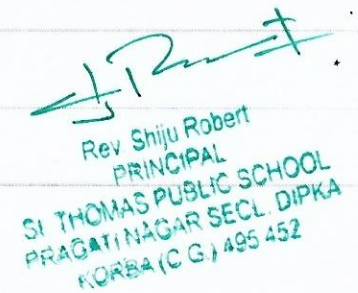 Rev Shiju Robert
PRINCIPAL
St THOMAS PUBLIC SCHOOL
PRAGATI NAGAR SECL. DIPKA
KORBA (C G.) 495 452